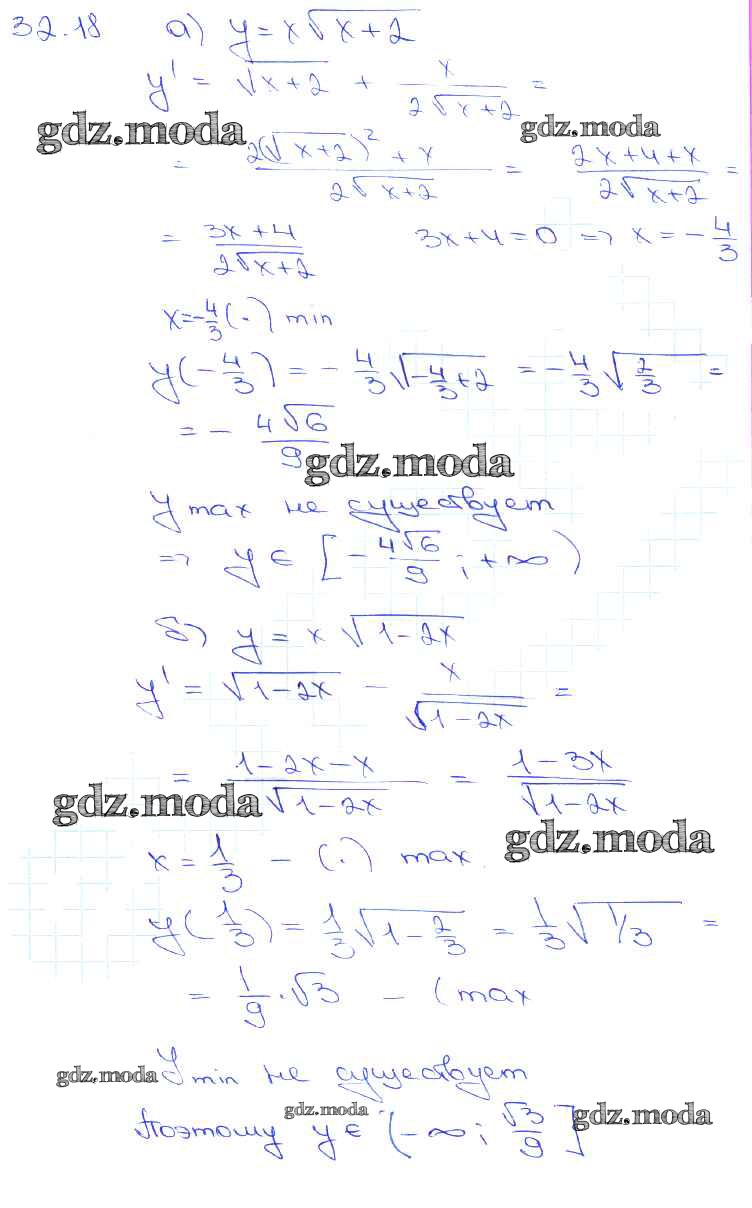 32.18 а) y = x√(x+2)
y' = √(x+2) + x/(2√(x+2)) =
gdz.moda gdz.moda
= (2(√(x+2))² + x)/(2√(x+2)) = (2x+4+x)/(2√(x+2)) =
= (3x+4)/(2√(x+2)) 3x+4=0 => x = -4/3
x = -4/3 (·) min
y(-4/3) = -4/3 √(-4/3+2) = -4/3 √(2/3) =
= - 4√6/9
gdz.moda
y max не существует
=> y ∈ [-4√6/9 ; +∞)
б) y = x √(1-2x)
y' = √(1-2x) - x/√(1-2x) =
= (1-2x-x)/√(1-2x) = (1-3x)/√(1-2x)
gdz.moda
gdz.moda
x = 1/3 - (·) max.
y(1/3) = 1/3 √(1-2/3) = 1/3 √(1/3) =
= 1/9 · √3 - (max
gdz.moda y min не существует
gdz.moda gdz.moda
Поэтому y ∈ (-∞; √3/9]